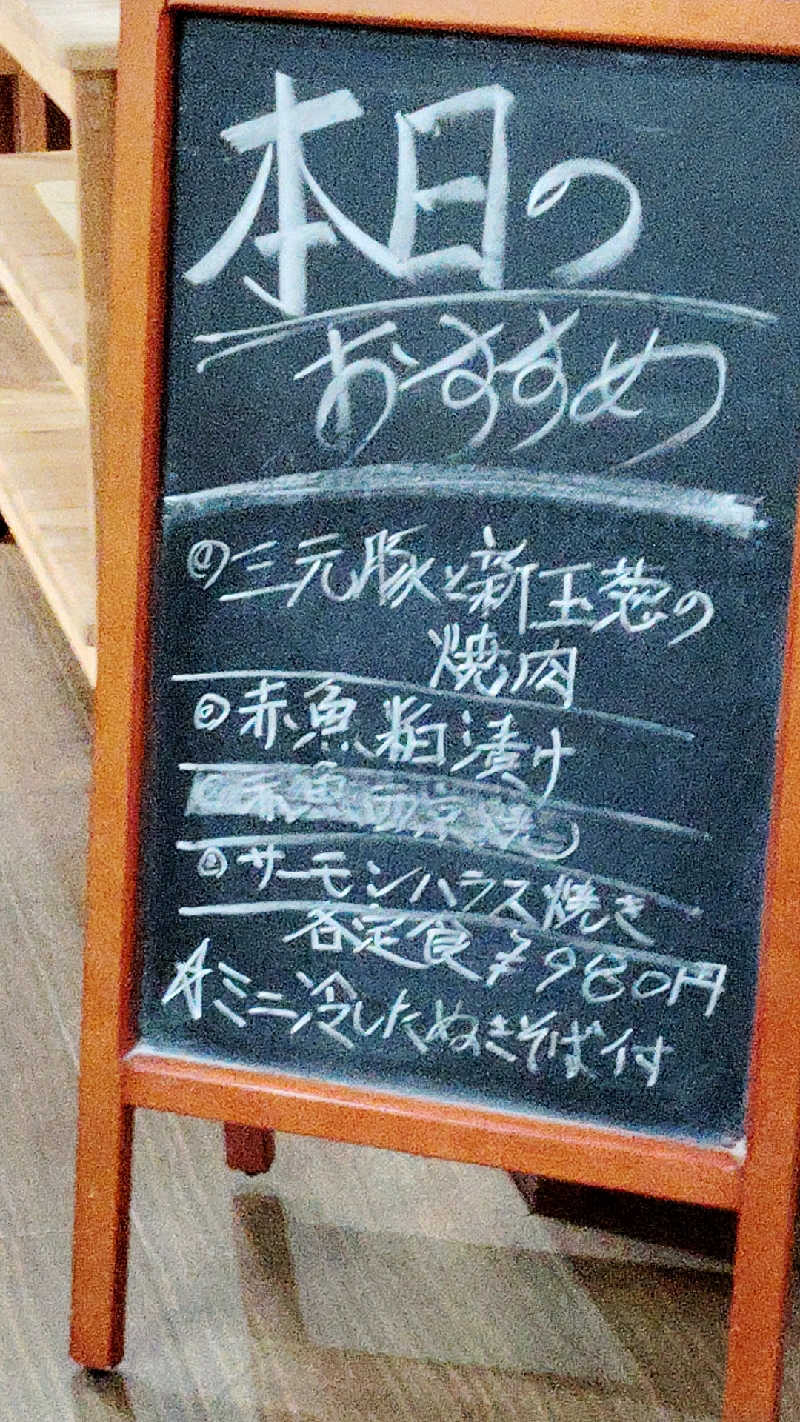 本日の
おすすめ
①三元豚と新玉葱の
焼肉
②赤魚粕漬け
③サーモンハラス焼き
各定食¥980円
☆ミニ冷したぬきそば付